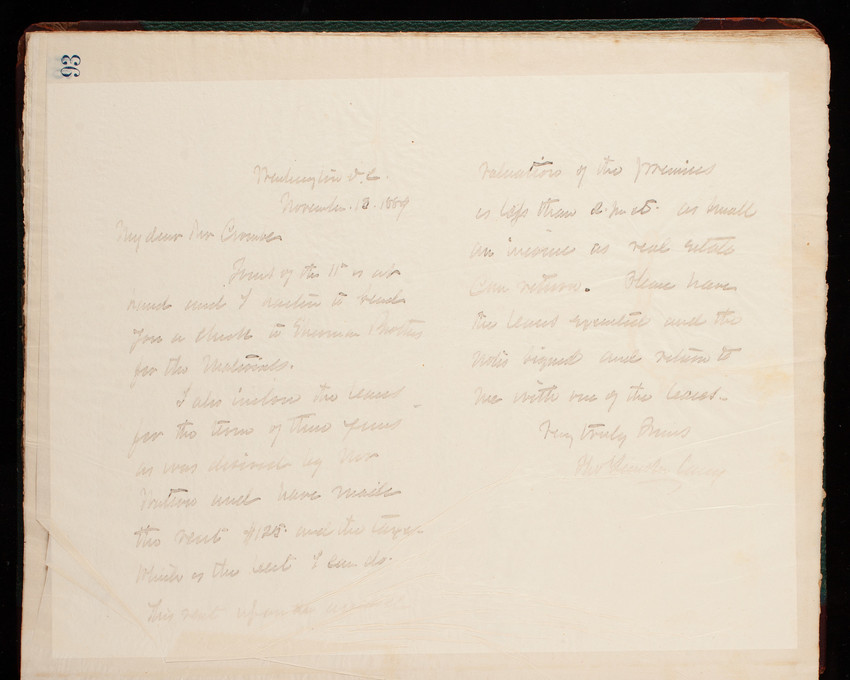 93
Washington D.C.
November. 13. 1889
My dear Mr
Yours of the 11th is at
hand and I hasten to send
you a check to Sherman Brothers
for the Materials.
I also inclose the leases
for the term of three years
as was desired by Mr
and have made
the rent $125. and the taxes
which is the best I can do.
This rent upon the
valuation of the premises
is less than as small
an income as real estate
can return. Please have
the leases executed and the
notes signed and return to
me with one of the leases.
Very truly Yours
Thos Lincoln Casey